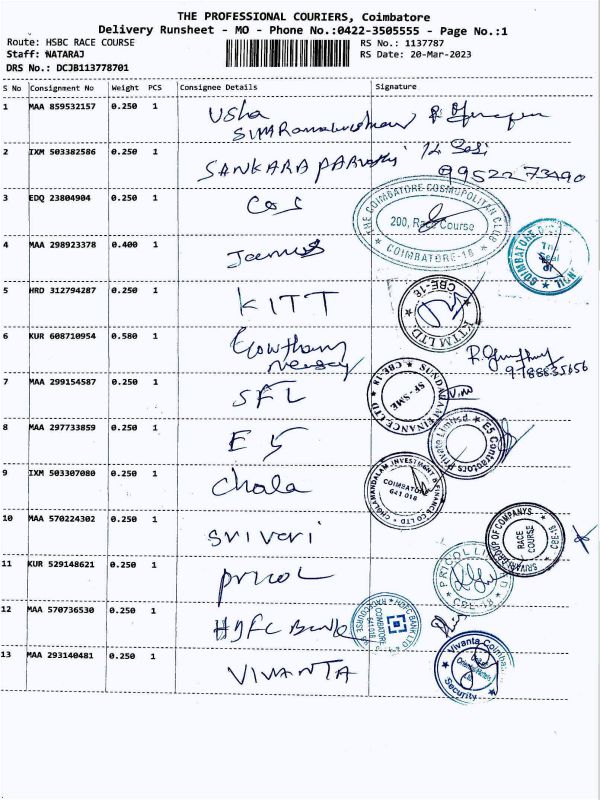 THE PROFESSIONAL COURIERS, Coimbatore
Delivery Runsheet - MO - Phone No.:0422-3505555 - Page No.:1
Route: HSBC RACE COURSE
RS No.: 1137787
Staff: NATARAJ
RS Date: 20-Mar-2023
DRS No.: DCJB113778701
S No Consignment No Weight PCS Consignee Details Signature
1 MAA 859532157 0.250 1 Usha
2 IXM 503382586 0.250 1 SANKARA PARVATHI
9952273490
3 EDQ 23804904 0.250 1 COS
THE COIMBATORE COSMOPOLITAN CLUB
200, Race Course
COIMBATORE-18
4 MAA 298923378 0.400 1
5 HRD 312794287 0.250 1 KITT
CBE-18
6 KUR 608710954 0.580 1 Gowtham
9788635656
7 MAA 299154587 0.250 1 SFL
SUNDARAM FINANCE LTD
CBE-18
SF-SME
8 MAA 297733859 0.250 1 E5
E5 Contractors Private Limited
9 IXM 503307080 0.250 1 Chola
CHOLAMANDALAM INVESTMENT & FINANCE CO LTD
COIMBATORE
641 018
10 MAA 570224302 0.250 1 Sriveri
SRIVARI GROUP OF COMPANYS
RACE
COURSE
CBE-18
11 KUR 529148621 0.250 1 Pricol
PRICOL LIMITED
CBE-18
12 MAA 570736530 0.250 1 HDFC Bank
HDFC BANK LTD
COIMBATORE
641 018
RACECOURSE
13 MAA 293140481 0.250 1 VIVANTA
Vivanta Coimbatore
Security